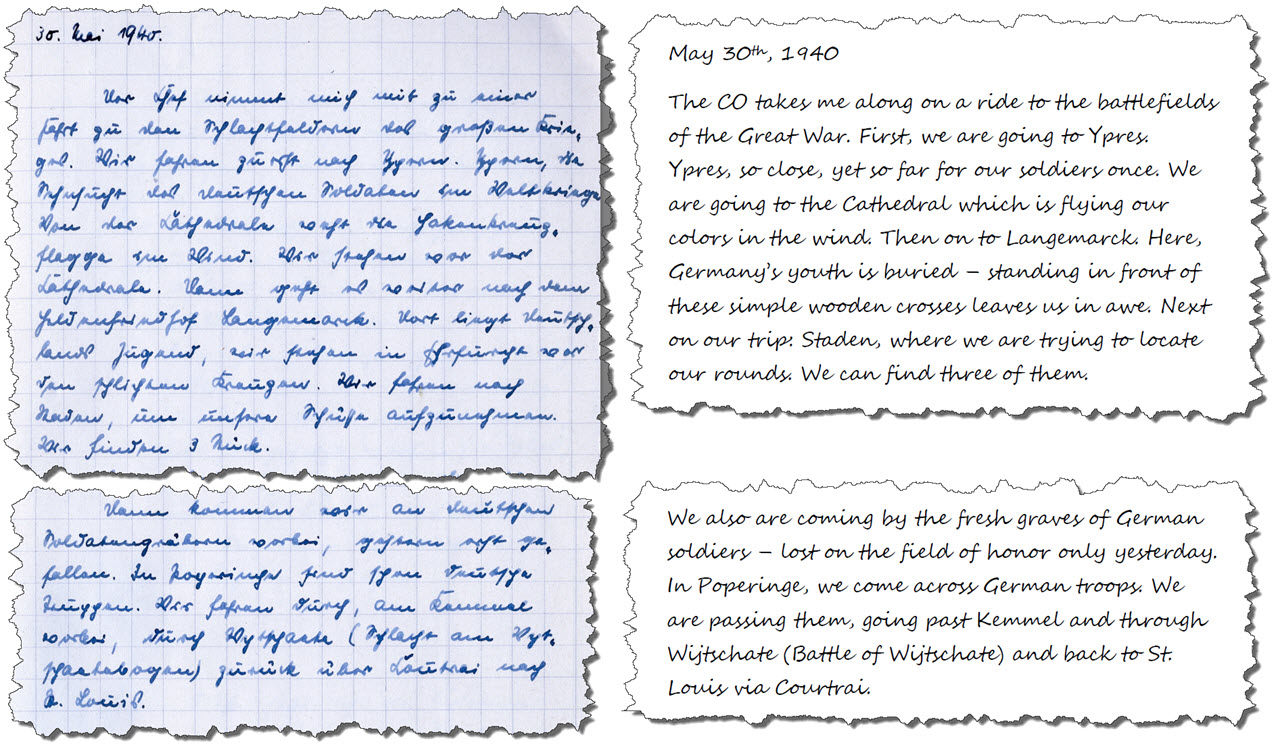 30. Mai 1940.
Der Chef nimmt mich mit zu einer
Fahrt zu den Schlachtfeldern des großen Krie-
ges. Wir fahren zuerst nach Ypern. Ypern, die
Sehnsucht des deutschen Soldaten im Weltkriege
Von der Kathedrale weht die Hakenkreuz-
flagge im Wind. Wir stehen vor der
Kathedrale. Dann geht es weiter nach dem
Heldenfriedhof Langemarck. Dort liegt Deutsch-
lands Jugend, wir stehen in Ehrfurcht vor
den schlichten Kreuzen. Wir fahren nach
Staden, um unsere Schüsse aufzunehmen.
Wir finden 3 Stück.
Dann kommen wir an deutschen
Soldatengräbern vorbei, gestern erst ge-
fallen. In Poperinghe sind schon deutsche
Truppen. Wir fahren durch, am Kemmel
vorbei, durch Wytschaete (Schlacht am Wyt-
schaetebogen) zurück über Coutrai nach
St. Louis.
May 30th, 1940
The CO takes me along on a ride to the battlefields
of the Great War. First, we are going to Ypres.
Ypres, so close, yet so far for our soldiers once. We
are going to the Cathedral which is flying our
colors in the wind. Then on to Langemarck. Here,
Germany's youth is buried – standing in front of
these simple wooden crosses leaves us in awe. Next
on our trip: Staden, where we are trying to locate
our rounds. We can find three of them.
We also are coming by the fresh graves of German
soldiers – lost on the field of honor only yesterday.
In Poperinge, we come across German troops. We
are passing them, going past Kemmel and through
Wijtschate (Battle of Wijtschate) and back to St.
Louis via Courtrai.